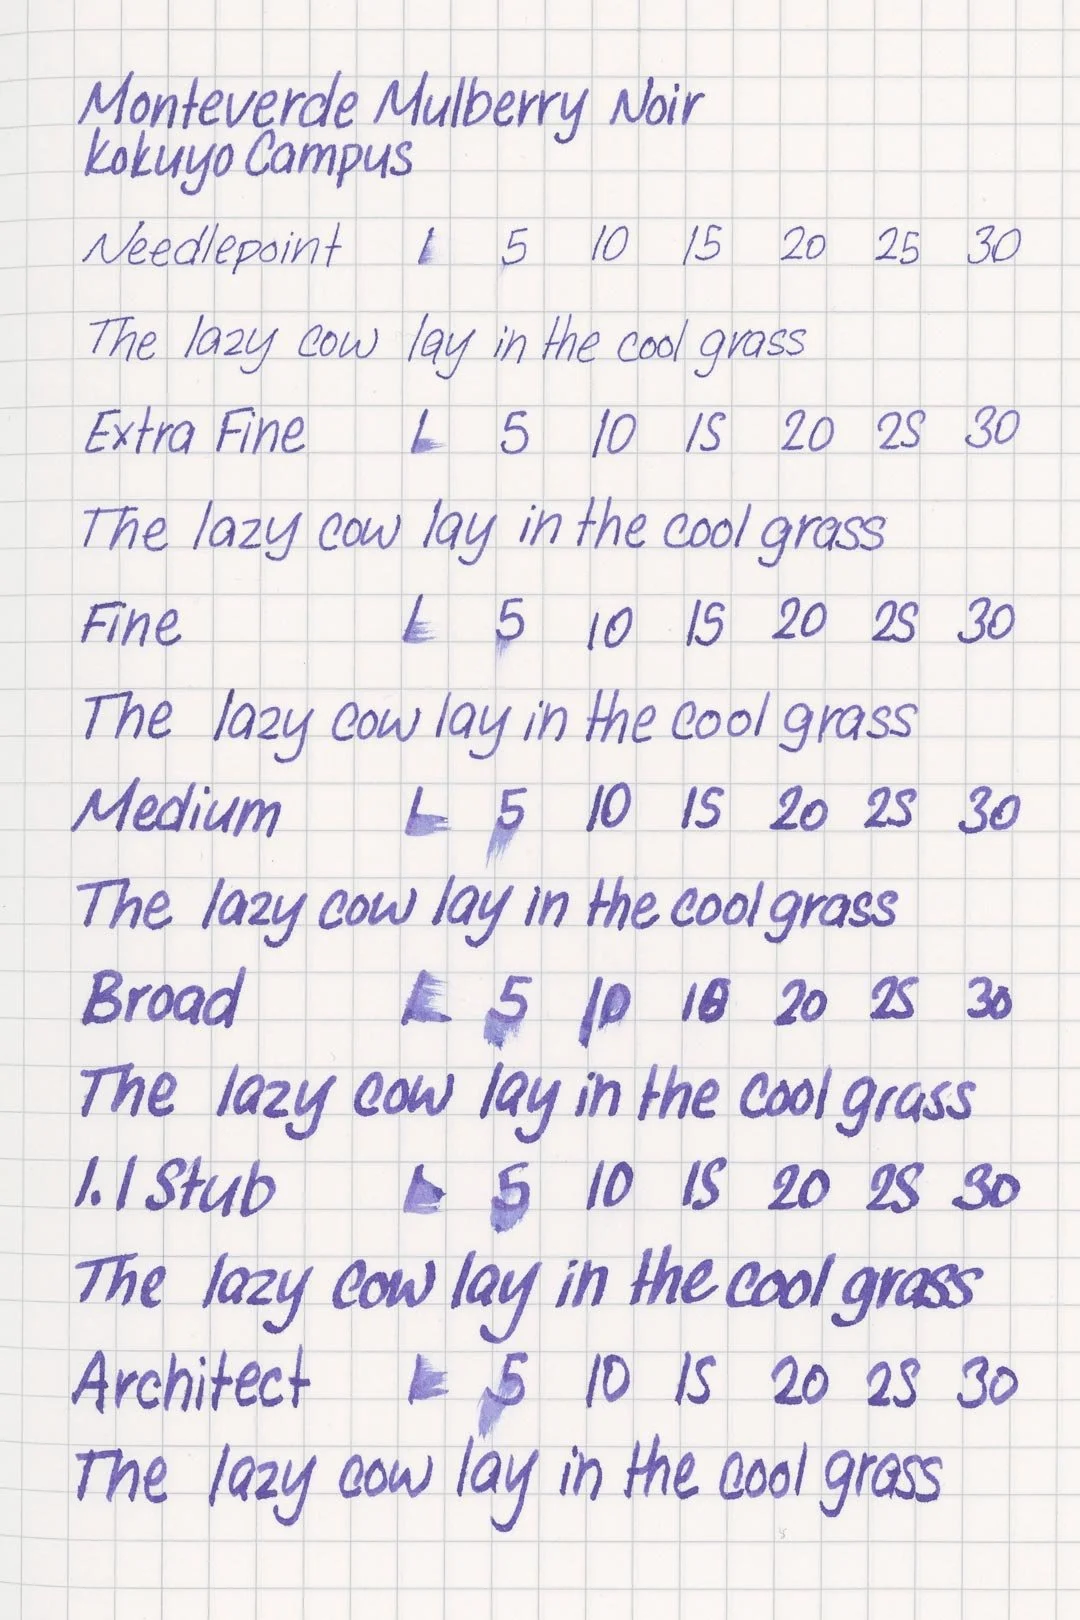 Monteverde Mulberry Noir
Kokuyo Campus
Needlepoint 1 5 10 15 20 25 30
The lazy cow lay in the cool grass
Extra Fine 1 5 10 15 20 25 30
The lazy cow lay in the cool grass
Fine 1 5 10 15 20 25 30
The lazy cow lay in the cool grass
Medium 1 5 10 15 20 25 30
The lazy cow lay in the cool grass
Broad 1 5 10 15 20 25 30
The lazy cow lay in the cool grass
1.1 Stub 1 5 10 15 20 25 30
The lazy cow lay in the cool grass
Architect 1 5 10 15 20 25 30
The lazy cow lay in the cool grass